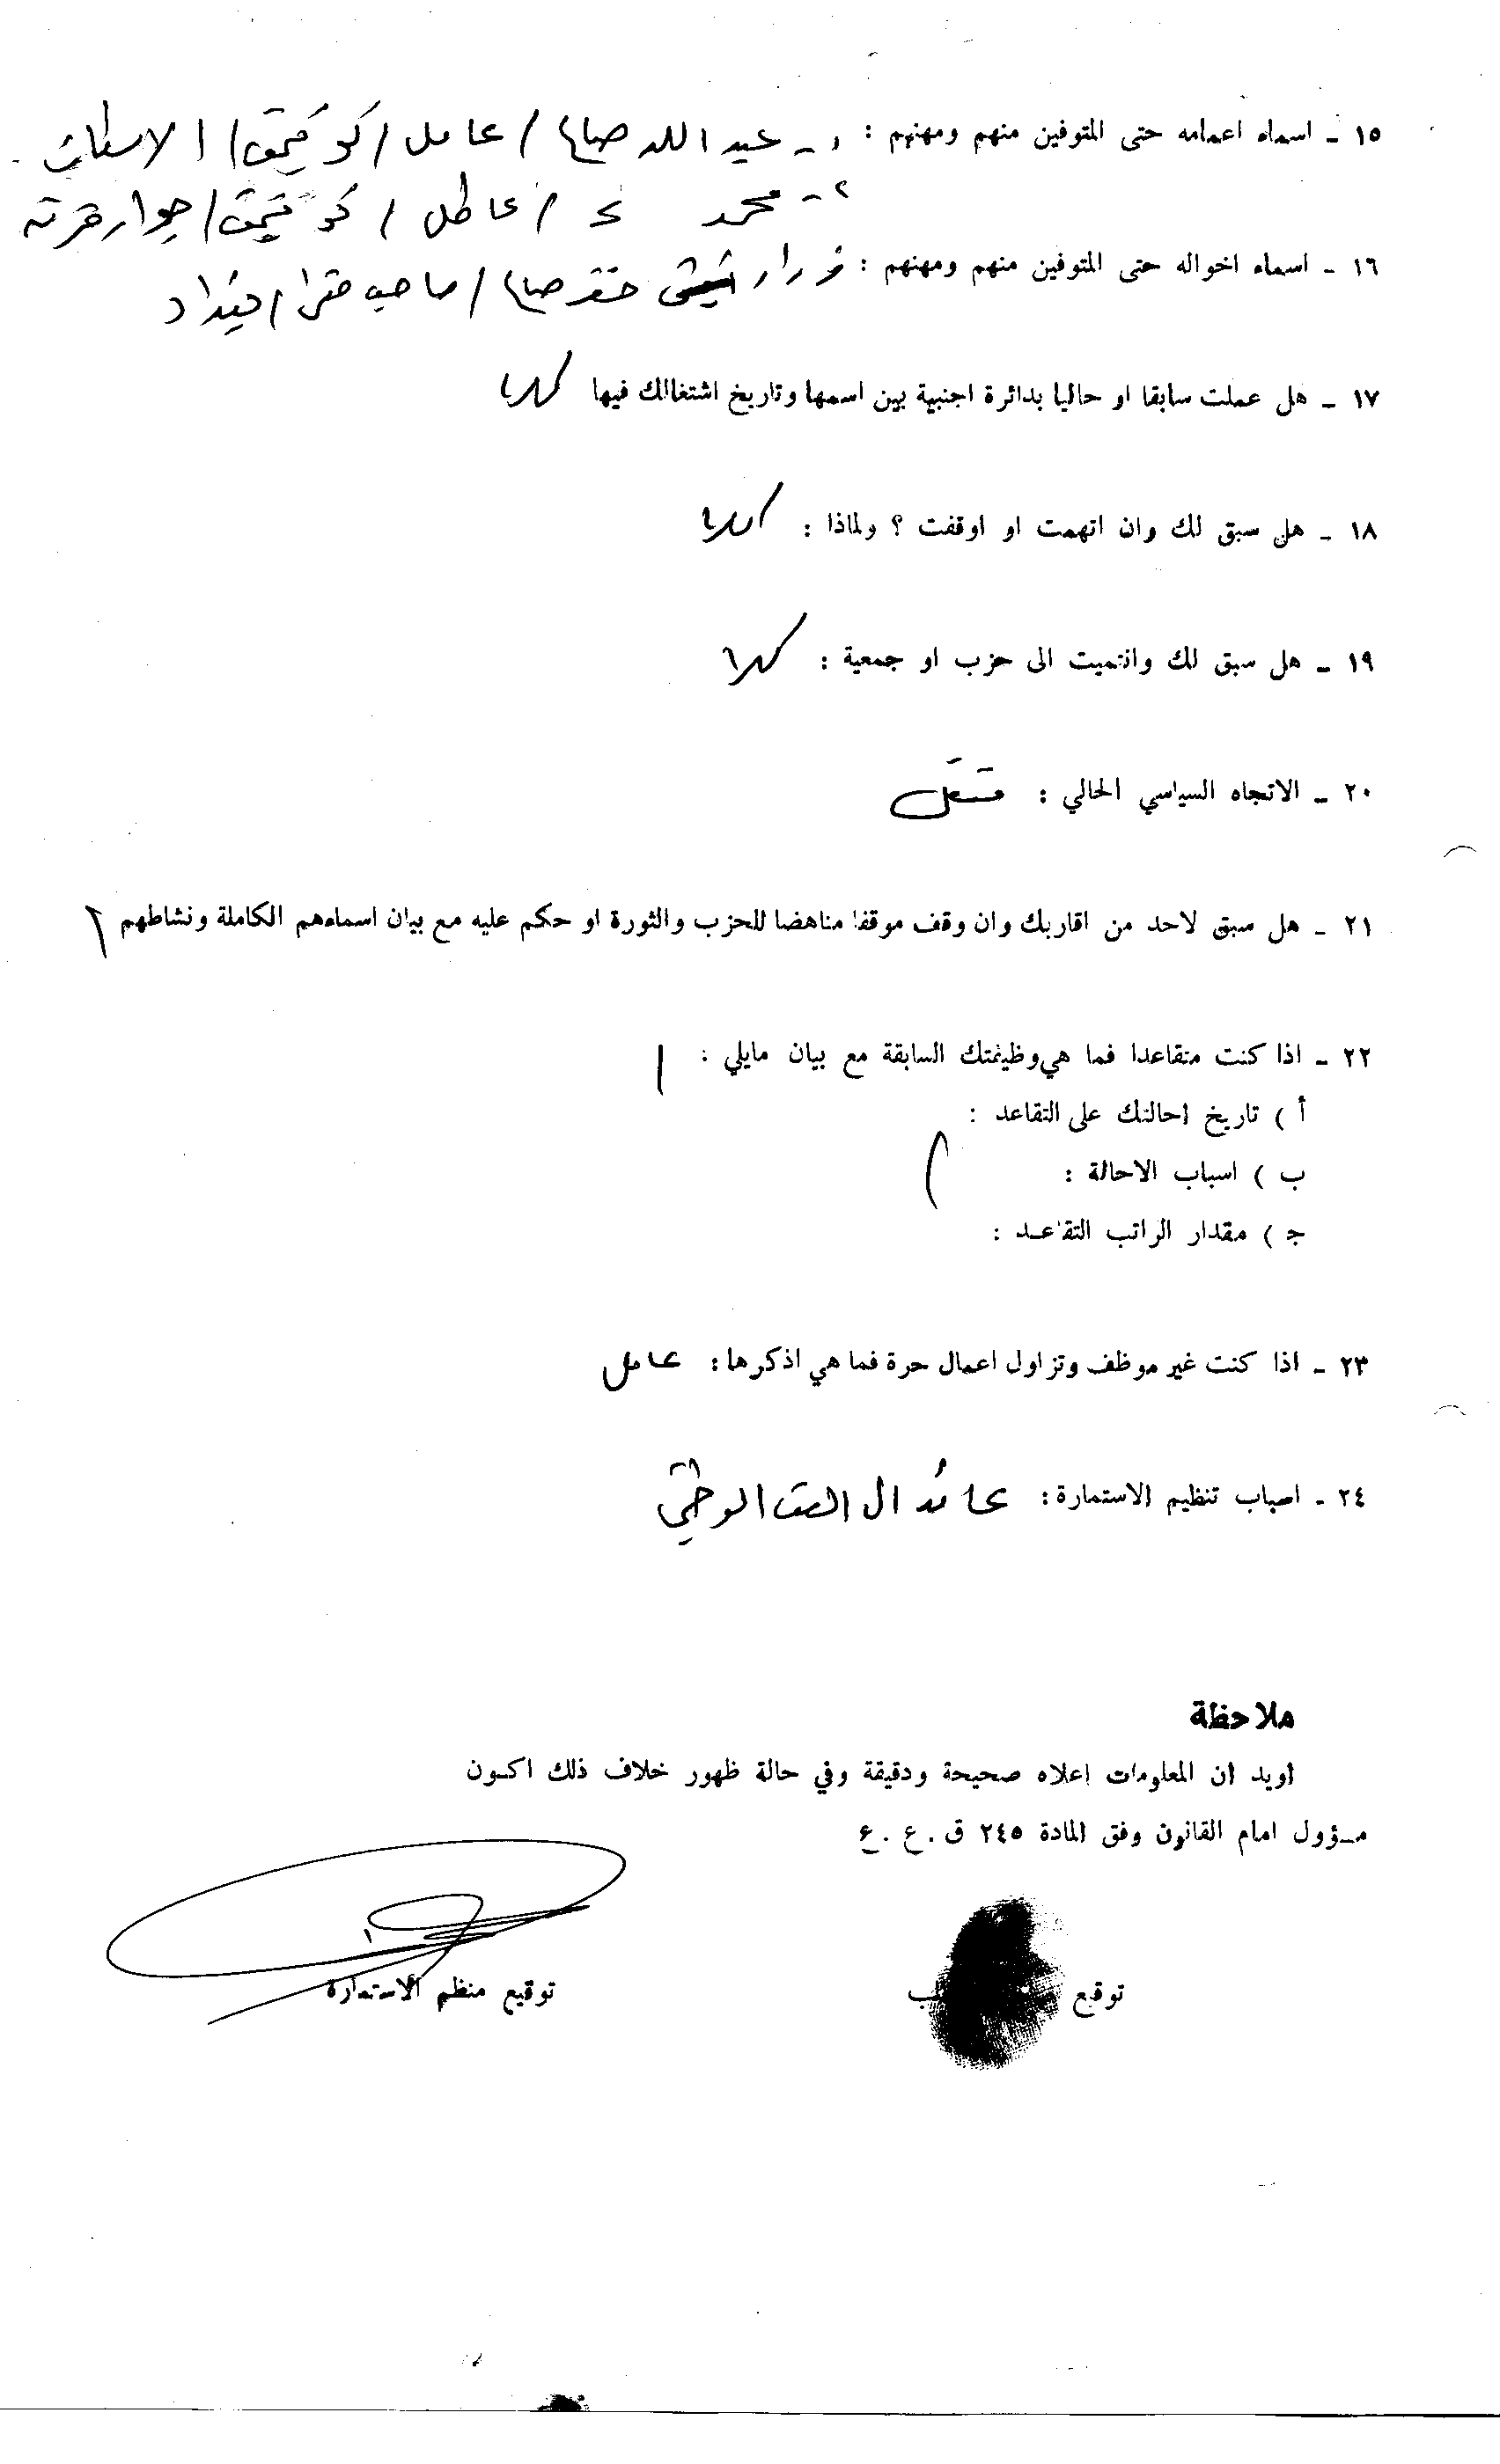 ١٥ - اسماء اعمامه حتى المتوفين منهم ومهنهم : ١ - عبد الله صالح / عامل / كو / الاسكان
٢ - محمد / عاطل / كو / جوار
١٦ - اسماء اخواله حتى المتوفين منهم ومهنهم : خضر صالح / صاحب / بغداد
١٧ - هل عملت سابقا او حاليا بدائرة اجنبية بين اسمها وتاريخ اشتغالك فيها كلا
١٨ - هل سبق لك وان اتهمت او اوقفت ؟ ولماذا : كلا
١٩ - هل سبق لك وانتميت الى حزب او جمعية : كلا
٢٠ - الاتجاه السياسي الحالي : مستقل
٢١ - هل سبق لاحد من اقاربك وان وقف موقفا مناهضا للحزب والثورة او حكم عليه مع بيان اسماءهم الكاملة ونشاطهم
٢٢ - اذا كنت متقاعدا فما هي وظيفتك السابقة مع بيان مايلي :
أ ) تاريخ احالتك على التقاعد :
ب ) اسباب الاحالة :
ج ) مقدار الراتب التقاعد :
٢٣ - اذا كنت غير موظف وتزاول اعمال حرة فما هي اذكرها : عامل
٢٤ - اسباب تنظيم الاستمارة : عائد الى الصف الوطني
ملاحظة
اويد ان المعلومات اعلاه صحيحة ودقيقة وفي حالة ظهور خلاف ذلك اكون
مسؤول امام القانون وفق المادة ٢٤٥ ق . ع . ع
توقيع
توقيع منظم الاستمارة